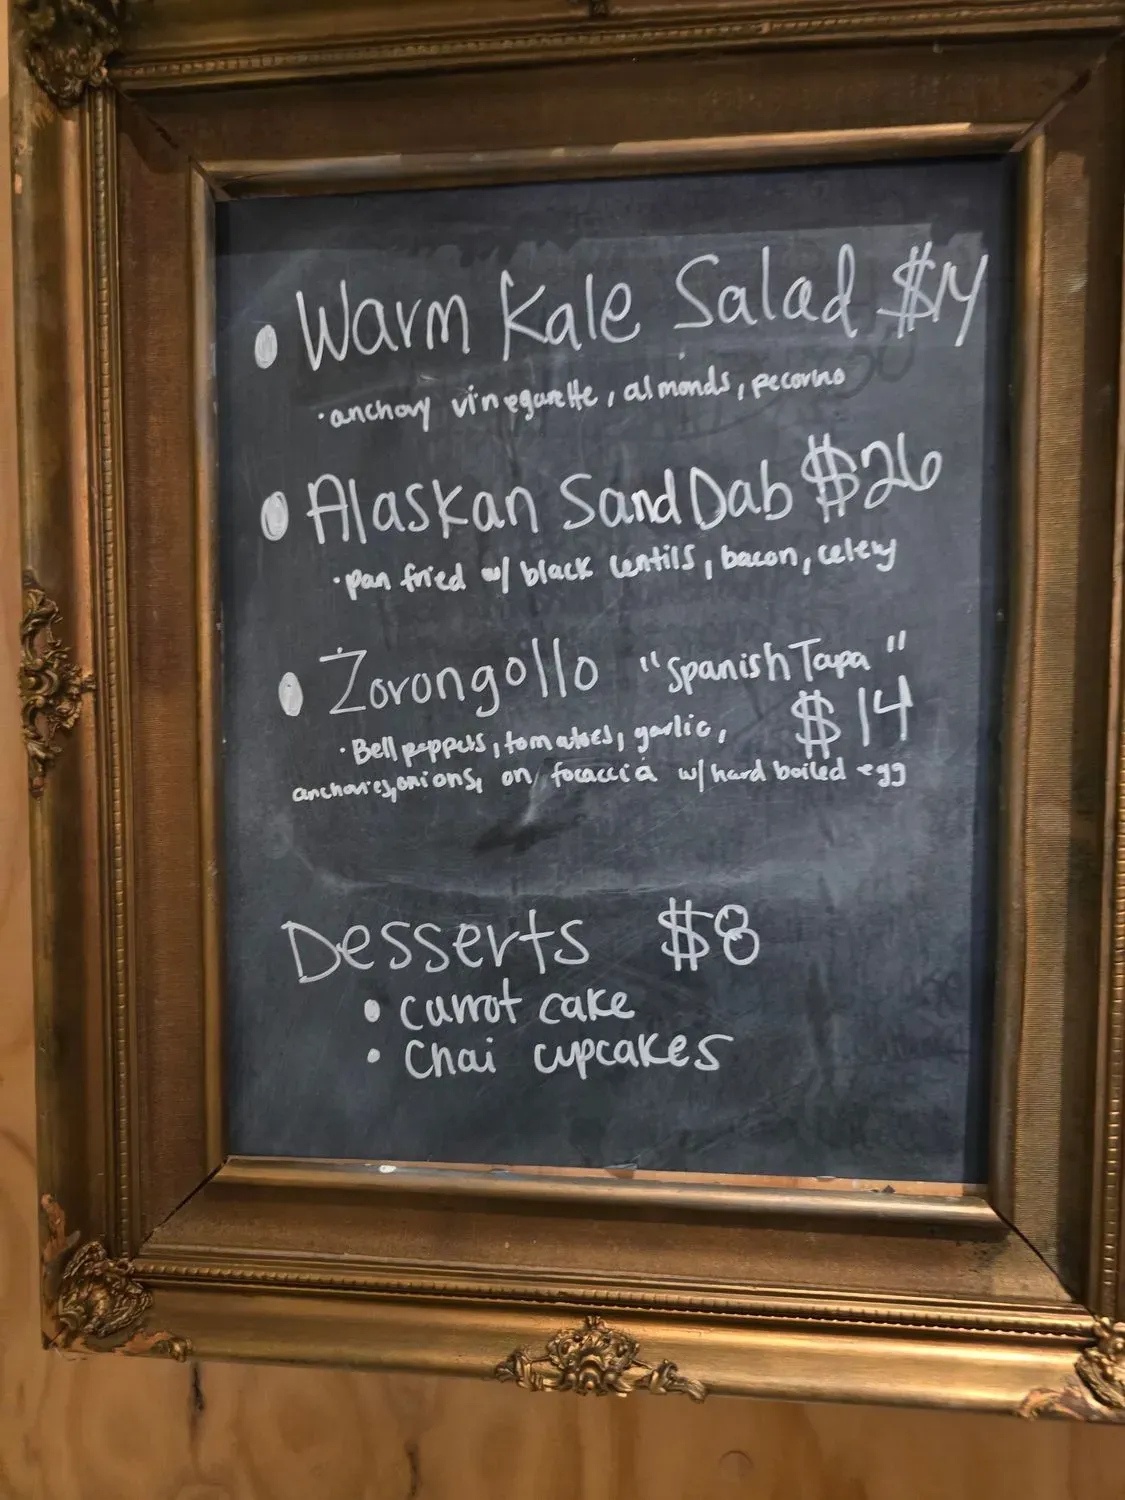 • Warm Kale Salad $14
• anchovy vinegarette, almonds, pecorino
• Alaskan Sand Dab $26
• pan fried w/ black lentils, bacon, celery
• Zorongollo "Spanish Tapa"
• Bell peppers, tomatoes, garlic, $14
anchovies, onions, on focaccia w/ hard boiled egg
Desserts $8
• carrot cake
• Chai cupcakes